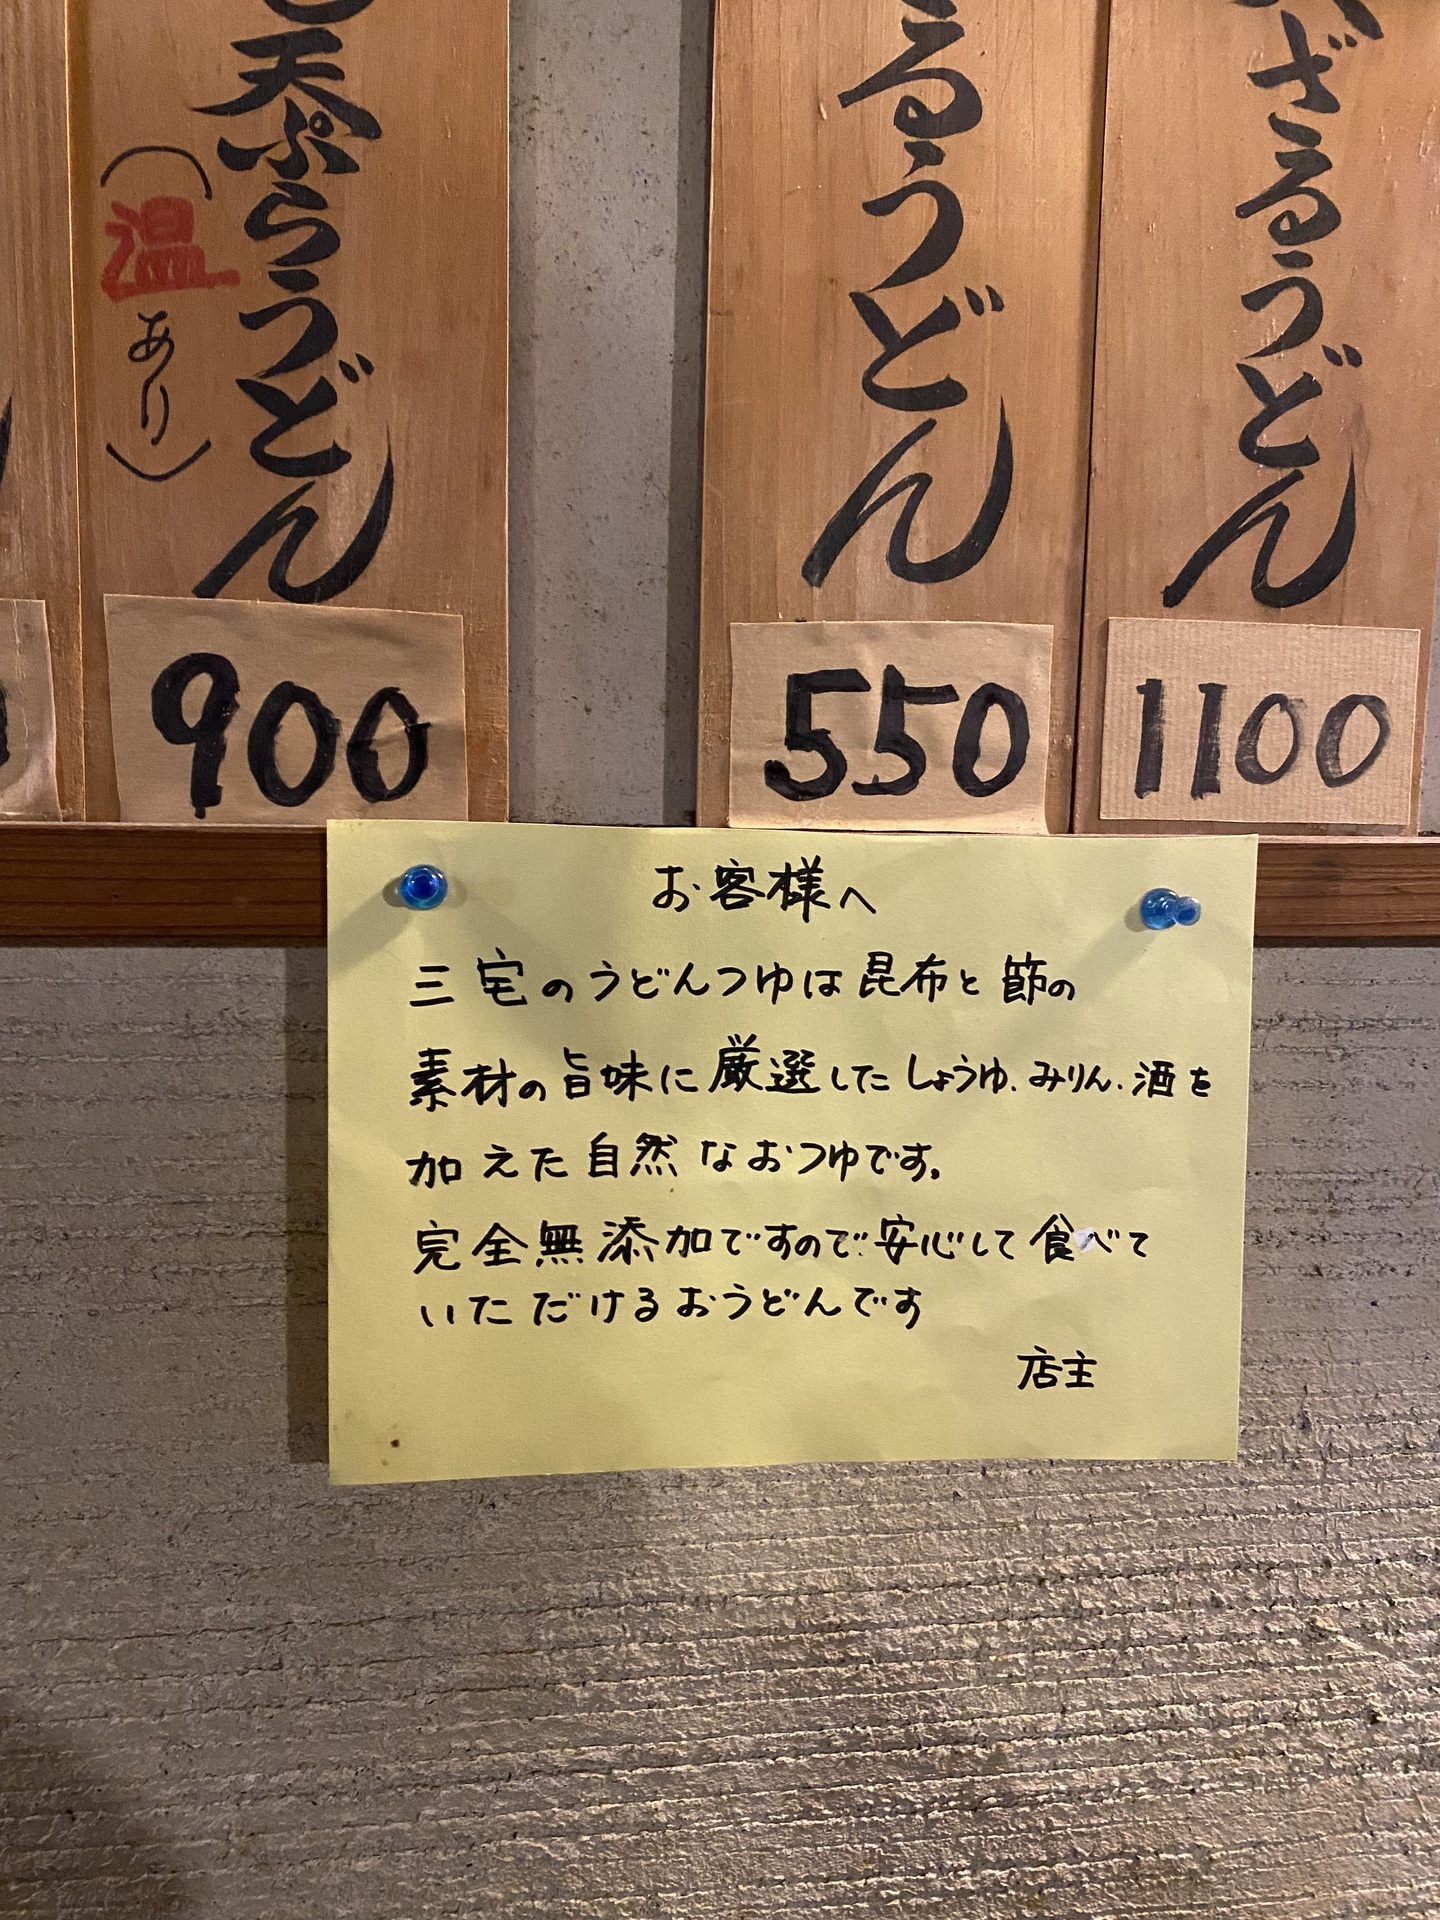 天ぷらうどん
（温あり）
900
るうどん
550
ざるうどん
1100
お客様へ
三宅のうどんつゆは昆布と節の
素材の旨味に厳選したしょうゆ、みりん、酒を
加えた自然なおつゆです。
完全無添加ですので安心して食べて
いただけるおうどんです
店主